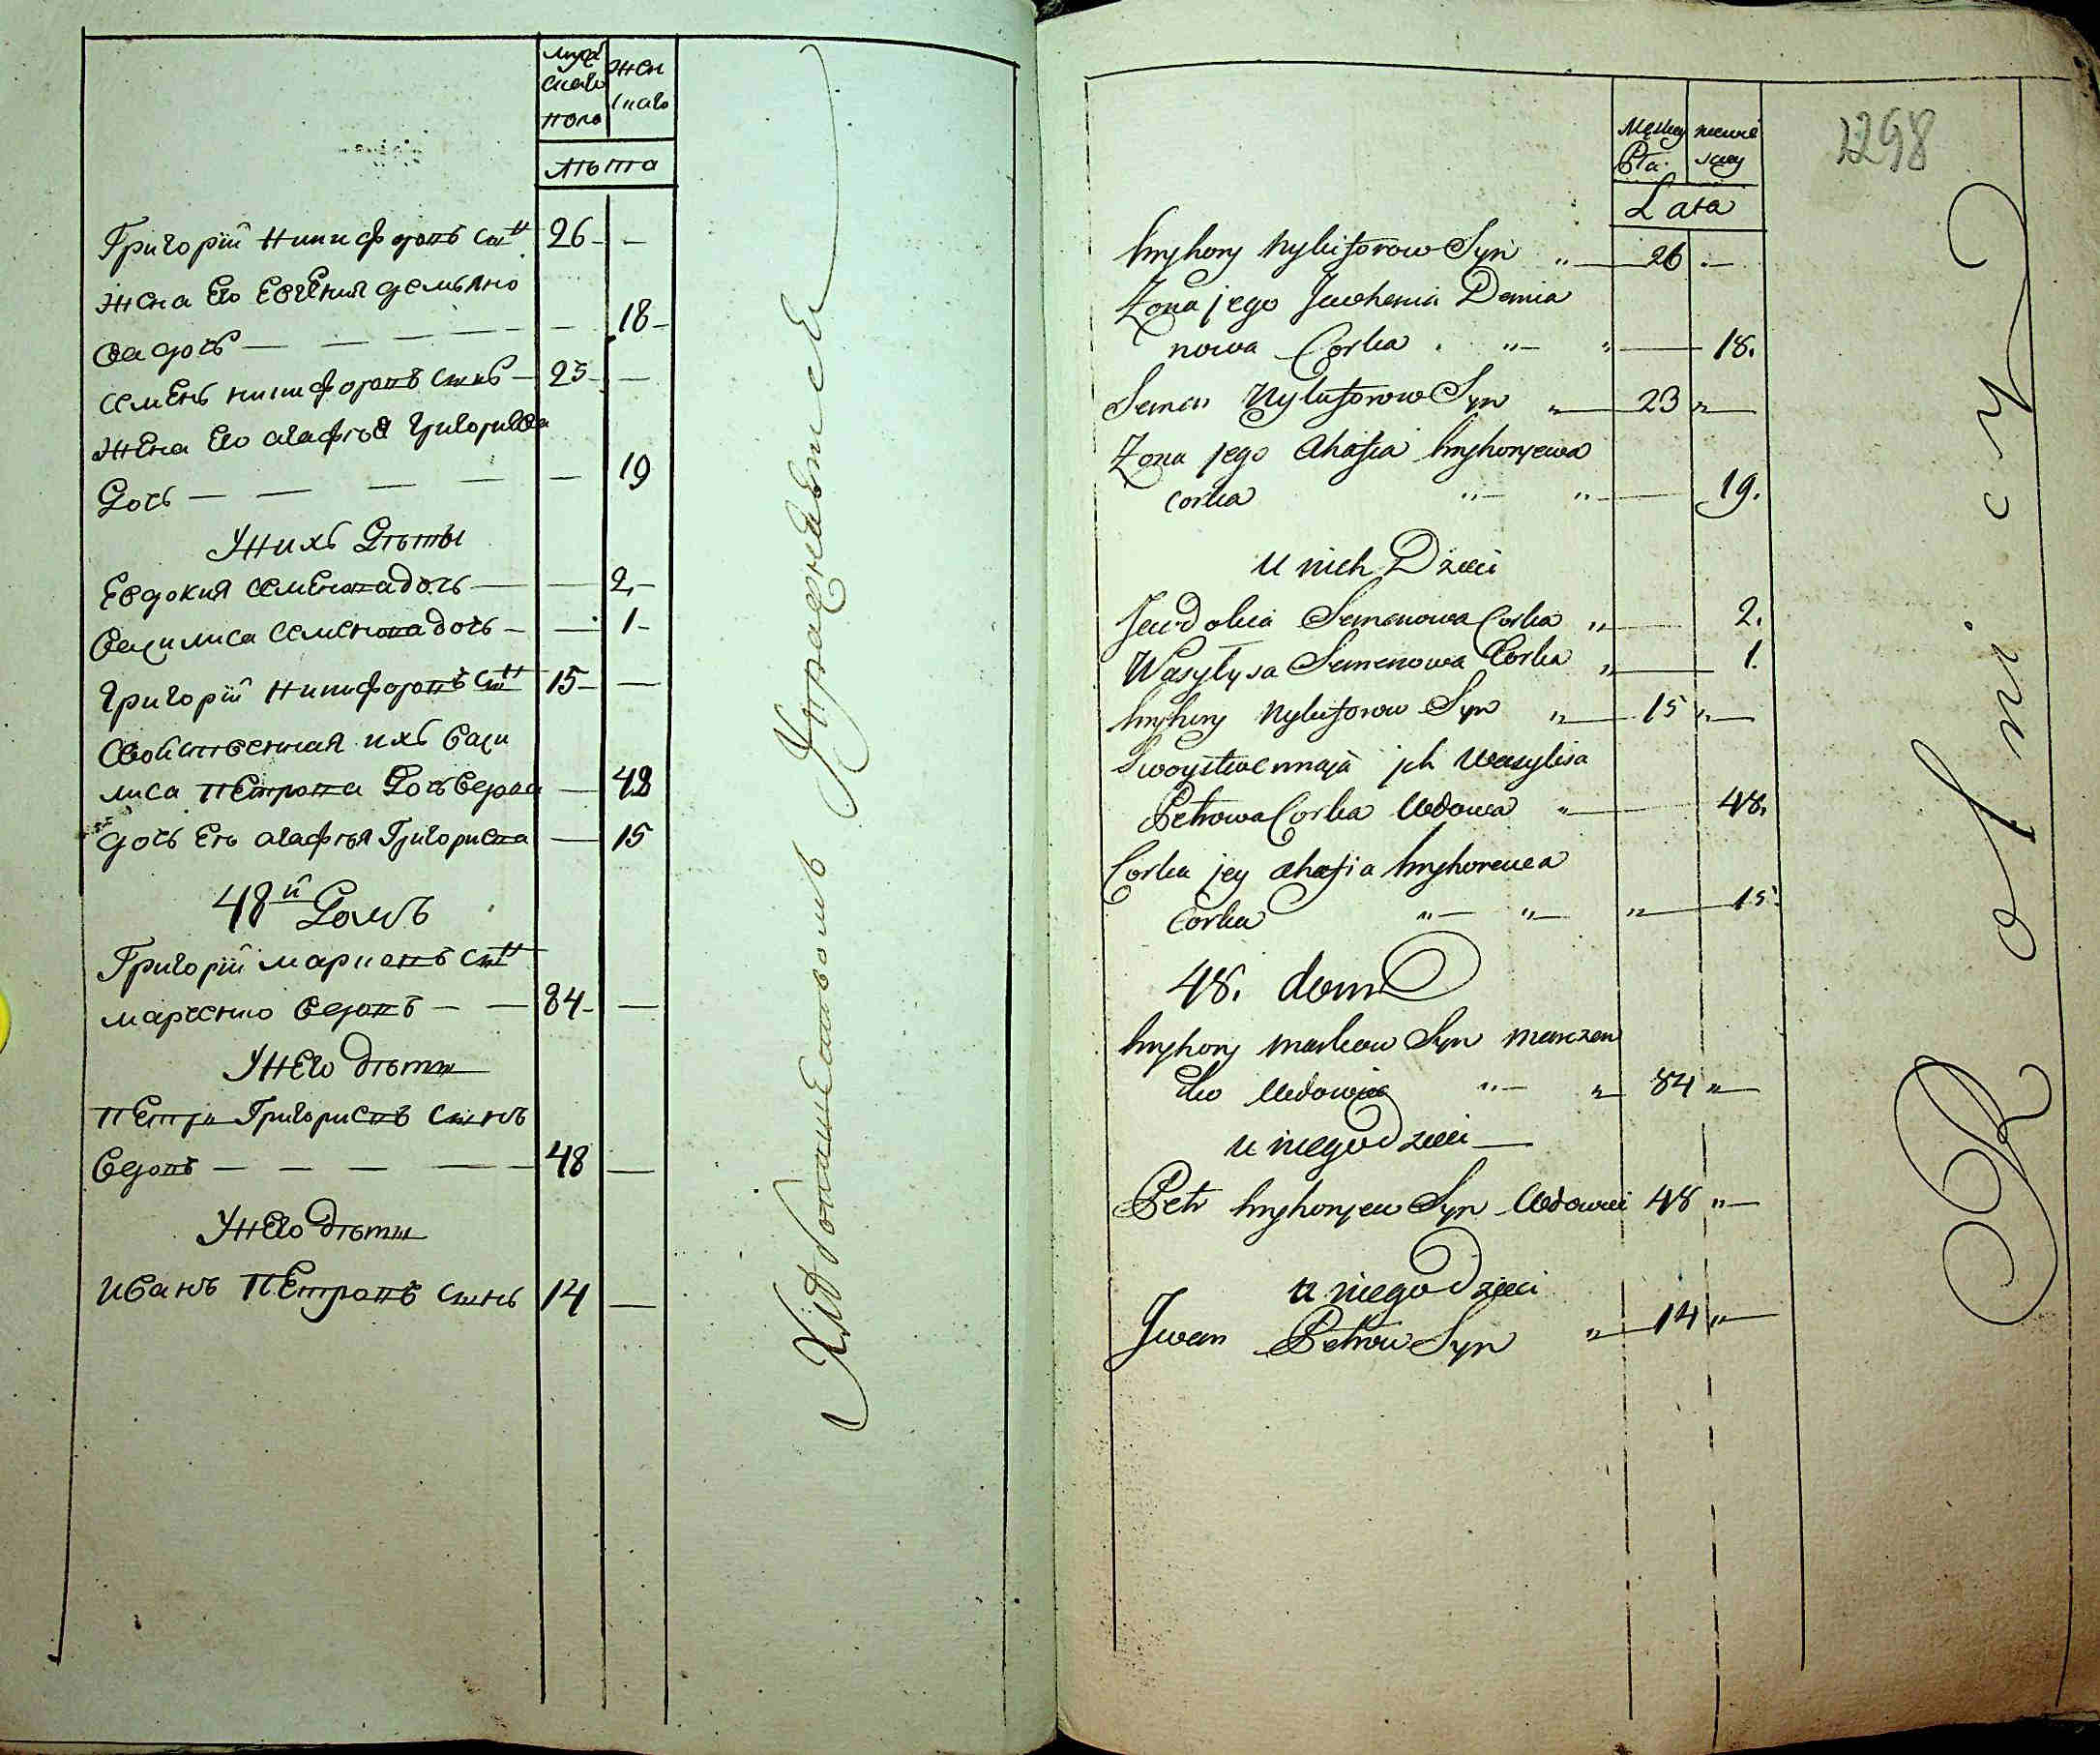 мужскаго пола
женскаго
лѣта
Григорій Никифоровъ сынъ 26 —
Жена Его Евгения демьяно
ва дочь — — — — — 18 —
Семенъ никифоровъ сынъ — 23 —
Жена Его агафья Григориева
Дочь — — — — — 19
У нихъ Дѣты
Евдокия семенова дочь — — 2 —
Василиса семенова дочь — — 1 —
Григорій никифоровъ сынъ 15 — —
Свойственная ихъ васи
лиса Петрова Дочь вдова — 48
дочь Ей агафья Григориева — 15
48й Домъ
Григорій марковъ сынъ
марченко вдовъ — — 84 — —
У него дѣты
Петръ Григориевъ сынъ
вдовъ — — — — — 48 —
У него дѣты
Иванъ Петровъ сынъ 14 —
Хлѣбопашествомъ Упражняется
1298
Męskey Płci
żeńskey
Lata
Hryhory Nykiforow Syn „ — 26 „ —
Żona jego Jewhenia Demia
nowa Corka „ — „ — 18.
Semen Nykiforow Syn „ — 23 „ —
Żona jego Ahafia Hryhorjewa
corka „ — „ — 19.
u nich Dzieci
Jewdokia Semenowa Corka „ — 2.
Wasyłysa Semenowa Corka „ — 1.
Hryhory Nykiforow Syn „ — 15 „ —
Swoystwennaja jch Wasylisa
Petrowa Corka Wdowa „ — 48.
Corka jey Ahafia Hryhorewa
Corka „ — „ — „ — 15.
48. dom
Hryhory Markow Syn Marczen
ko Wdowiec „ — „ 84 „ —
u niego Dzieci —
Petr Hryhorjew Syn Wdowiec 48 „ —
u niego Dzieci
Jwan Petrow Syn „ — 14 „ —
Rolnicy